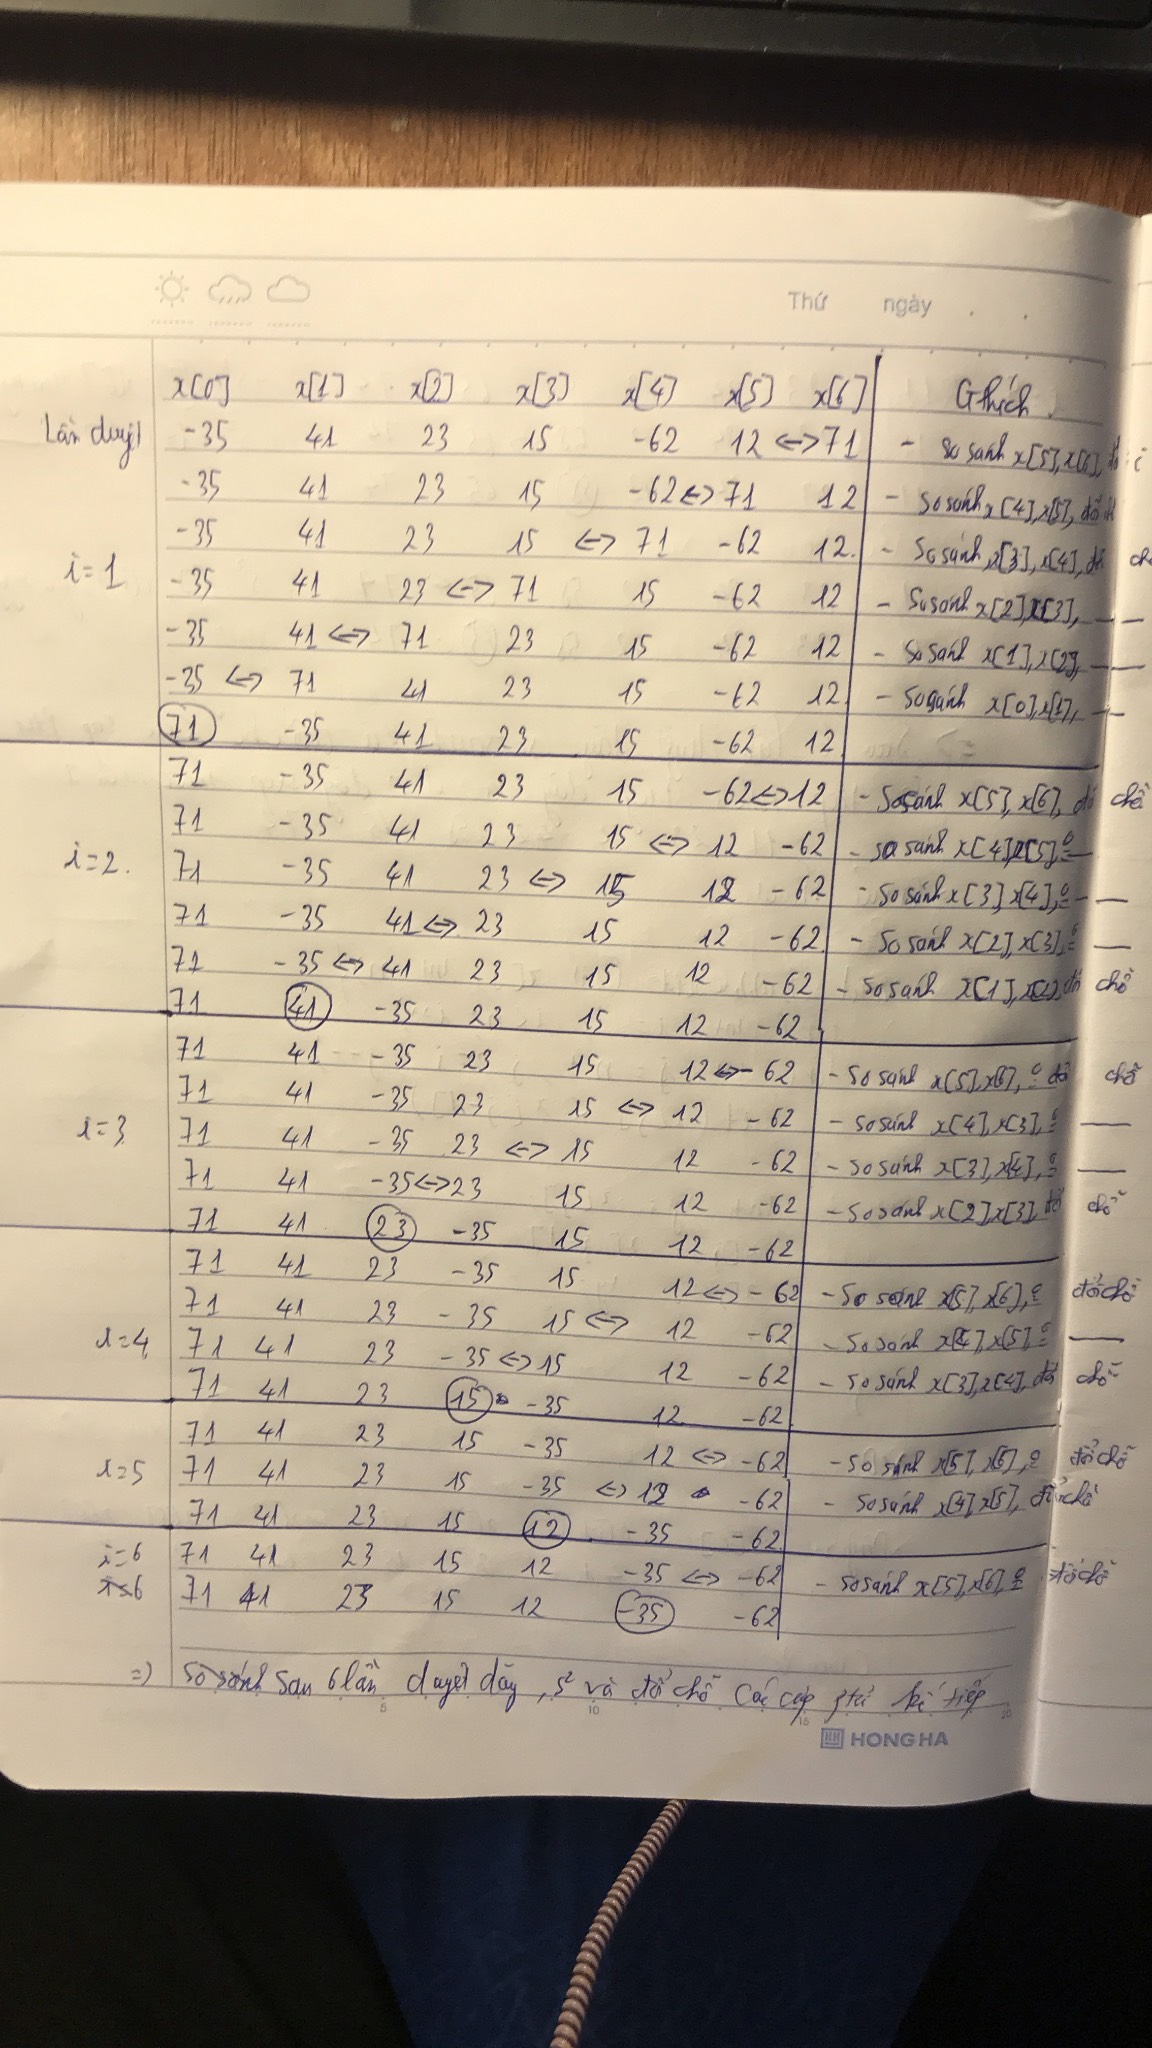 Thứ ngày
x[0] x[1] x[2] x[3] x[4] x[5] x[6] Gthích
Lần duyệt -35 41 23 15 -62 12 <-> 71 - so sánh x[5], x[6], đổi
-35 41 23 15 -62 <-> 71 12 - So sánh x[4], x[5], đổi
-35 41 23 15 <-> 71 -62 12. - So sánh x[3], x[4], đổi chỗ
i=1 -35 41 23 <-> 71 15 -62 12 - So sánh x[2], x[3], —
-35 41 <-> 71 23 15 -62 12 - So sánh x[1], x[2], —
-35 <-> 71 41 23 15 -62 12 - So sánh x[0], x[1], —
71 -35 41 23 15 -62 12
71 -35 41 23 15 -62 <-> 12 - So sánh x[5], x[6], đổi chỗ
71 -35 41 23 15 <-> 12 -62 - so sánh x[4], x[5], o —
i=2. 71 -35 41 23 <-> 15 12 -62 - So sánh x[3], x[4], o —
71 -35 41 <-> 23 15 12 -62 - So sánh x[2], x[3], o —
71 -35 <-> 41 23 15 12 -62 - So sánh x[1], x[2], đổi chỗ
71 41 -35 23 15 12 -62
71 41 -35 23 15 12 <-> -62 - So sánh x[5], x[6], o đổi chỗ
71 41 -35 23 15 <-> 12 -62 - so sánh x[4], x[3], o —
i=3 71 41 -35 23 <-> 15 12 -62 - So sánh x[3], x[4], o —
71 41 -35 <-> 23 15 12 -62 - So sánh x[2], x[3], đổi chỗ
71 41 23 -35 15 12 -62
71 41 23 -35 15 12 <-> -62 - So sánh x[5], x[6], o đổi chỗ
71 41 23 -35 15 <-> 12 -62 - So sánh x[4], x[5], o —
i=4 71 41 23 -35 <-> 15 12 -62 - So sánh x[3], x[4], đổi chỗ
71 41 23 15 -35 12 -62
71 41 23 15 -35 12 <-> -62 - So sánh x[5], x[6], o đổi chỗ
i=5 71 41 23 15 -35 <-> 12 -62 - So sánh x[4], x[5], đổi chỗ
71 41 23 15 12 -35 -62
i=6 71 41 23 15 12 -35 <-> -62 - So sánh x[5], x[6], o đổi chỗ
71 41 23 15 12 -35 -62
=) Sau 6 lần duyệt dãy, s² và đổi chỗ các cặp ptử kế tiếp
5 10 15 20
HH HONG HA